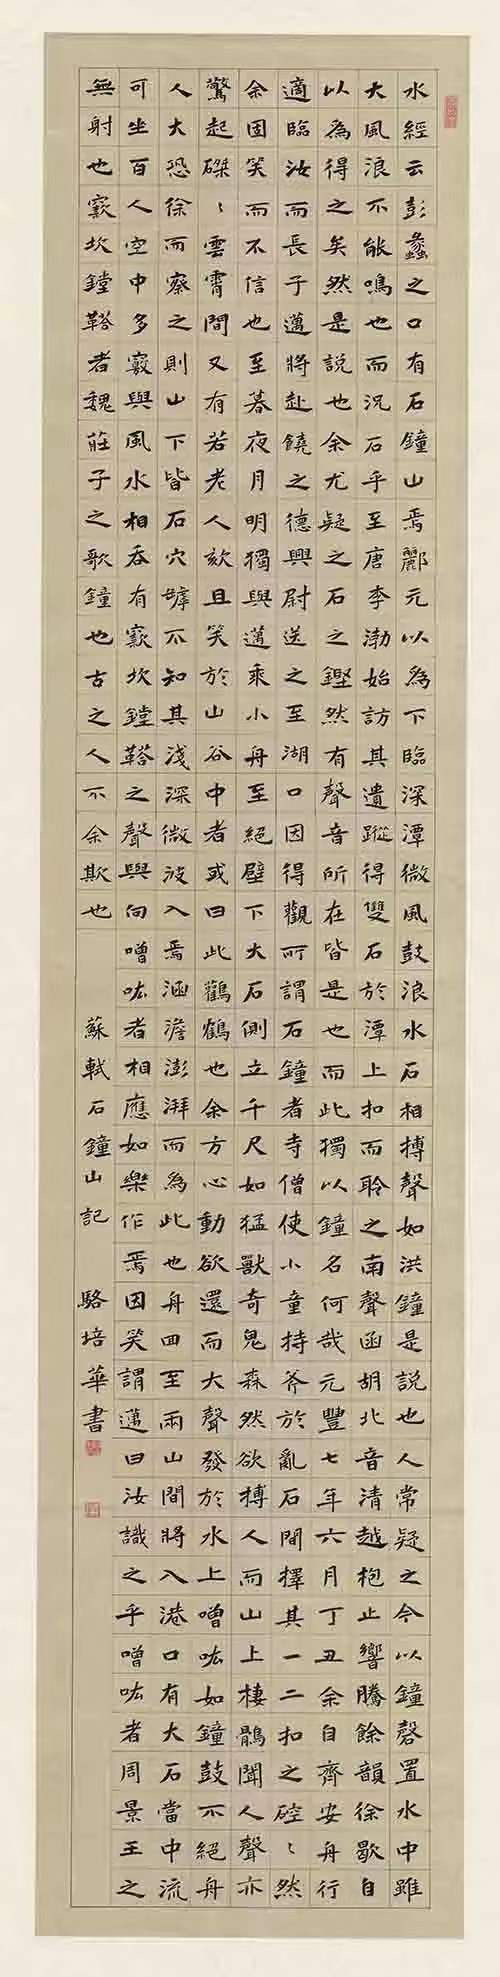 水經云彭蠡之口有石鐘山焉酈元以為下臨深潭微風鼓浪水石相搏聲如洪鐘是說也人常疑之今以鐘磬置水中雖
大風浪不能鳴也而況石乎至唐李渤始訪其遺蹤得雙石於潭上扣而聆之南聲函胡北音清越枹止響騰餘韻徐歇自
以為得之矣然是說也余尤疑之石之鏗然有聲音所在皆是也而此獨以鐘名何哉元豐七年六月丁丑余自齊安舟行
適臨汝而長子邁將赴饒之德興尉送之至湖口因得觀所謂石鐘者寺僧使小童持斧於亂石間擇其一二扣之硿〻然
余固笑而不信也至暮夜月明獨與邁乘小舟至絕壁下大石側立千尺如猛獸奇鬼森然欲搏人而山上棲鶻聞人聲亦
驚起磔〻雲霄間又有若老人欬且笑於山谷中者或曰此鸛鶴也余方心動欲還而大聲發於水上噌吰如鐘鼓不絕舟
人大恐徐而察之則山下皆石穴罅不知其淺深微波入焉涵澹澎湃而為此也舟回至兩山間將入港口有大石當中流
可坐百人空中多竅與風水相吞有窾坎鏜鞳之聲與向噌吰者相應如樂作焉因笑謂邁曰汝識之乎噌吰者周景王之
無射也窾坎鏜鞳者魏莊子之歌鐘也古之人不余欺也 蘇軾石鐘山記 駱培華書